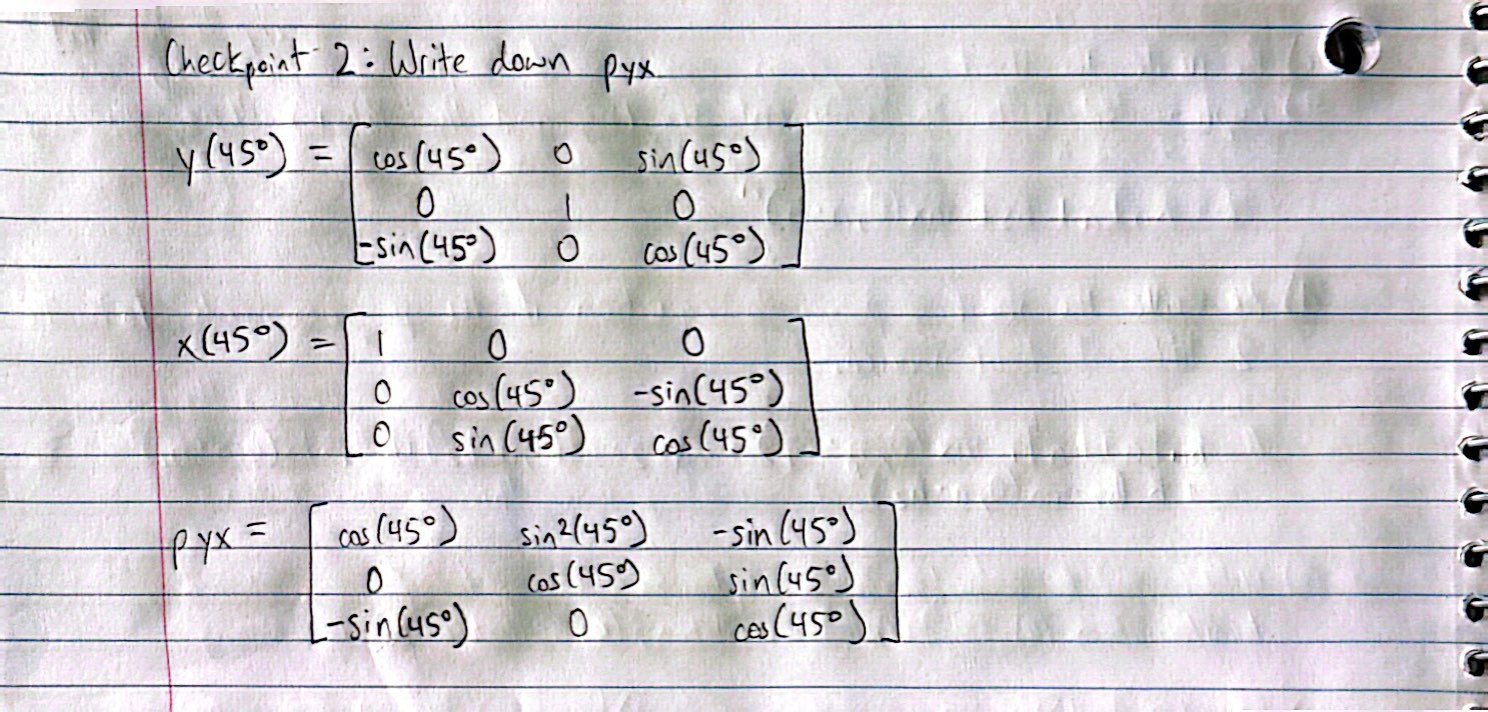 Checkpoint 2: Write down pyx
y(45°) = [ cos(45°) 0 sin(45°)
0 1 0
-sin(45°) 0 cos(45°) ]
x(45°) = [ 1 0 0
0 cos(45°) -sin(45°)
0 sin(45°) cos(45°) ]
pyx = [ cos(45°) sin2(45°) -sin(45°)
0 cos(45°) sin(45°)
-sin(45°) 0 cos(45°) ]